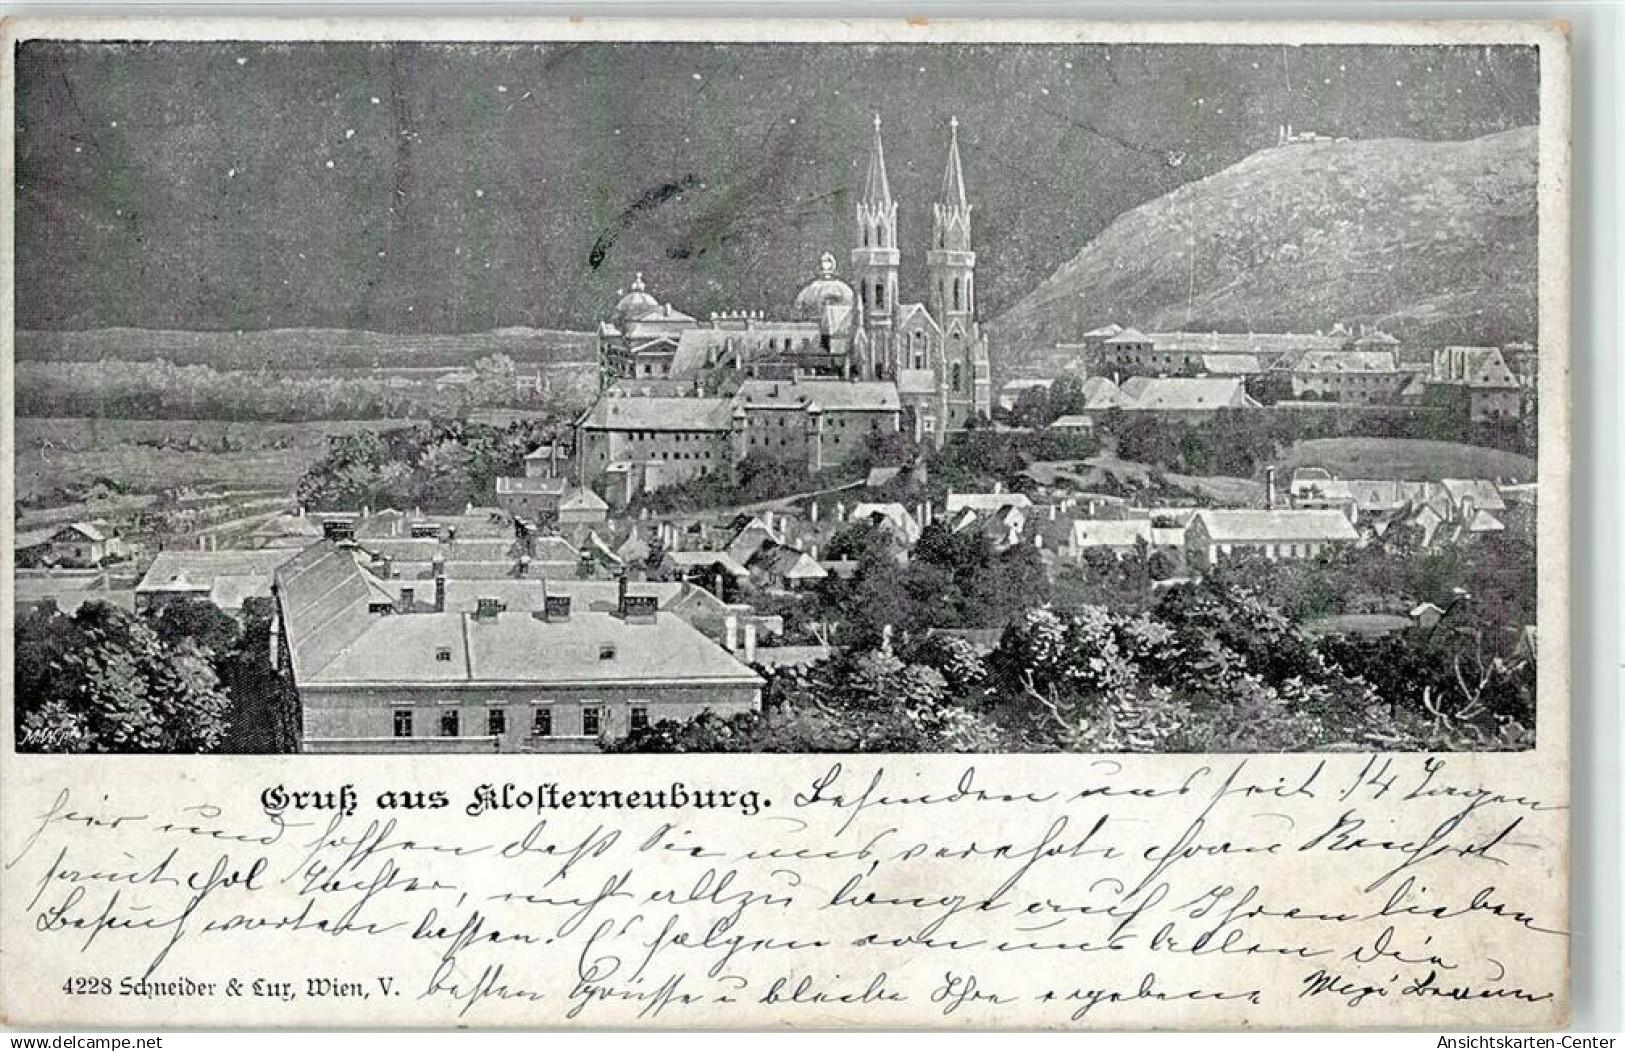 Gruß aus Klosterneuburg. Befinden uns seit 14 Tagen
hier und hoffen daß Sie uns, verehrte Frau
samt Frl Tochter, nicht allzu lange auf Ihren lieben
Besuch warten lassen. Es folgen von uns Allen die
4228 Schneider & Lux, Wien, V. besten Grüsse u bleibe Ihre ergebene Mizi
delcampe.net
Ansichtskarten-Center